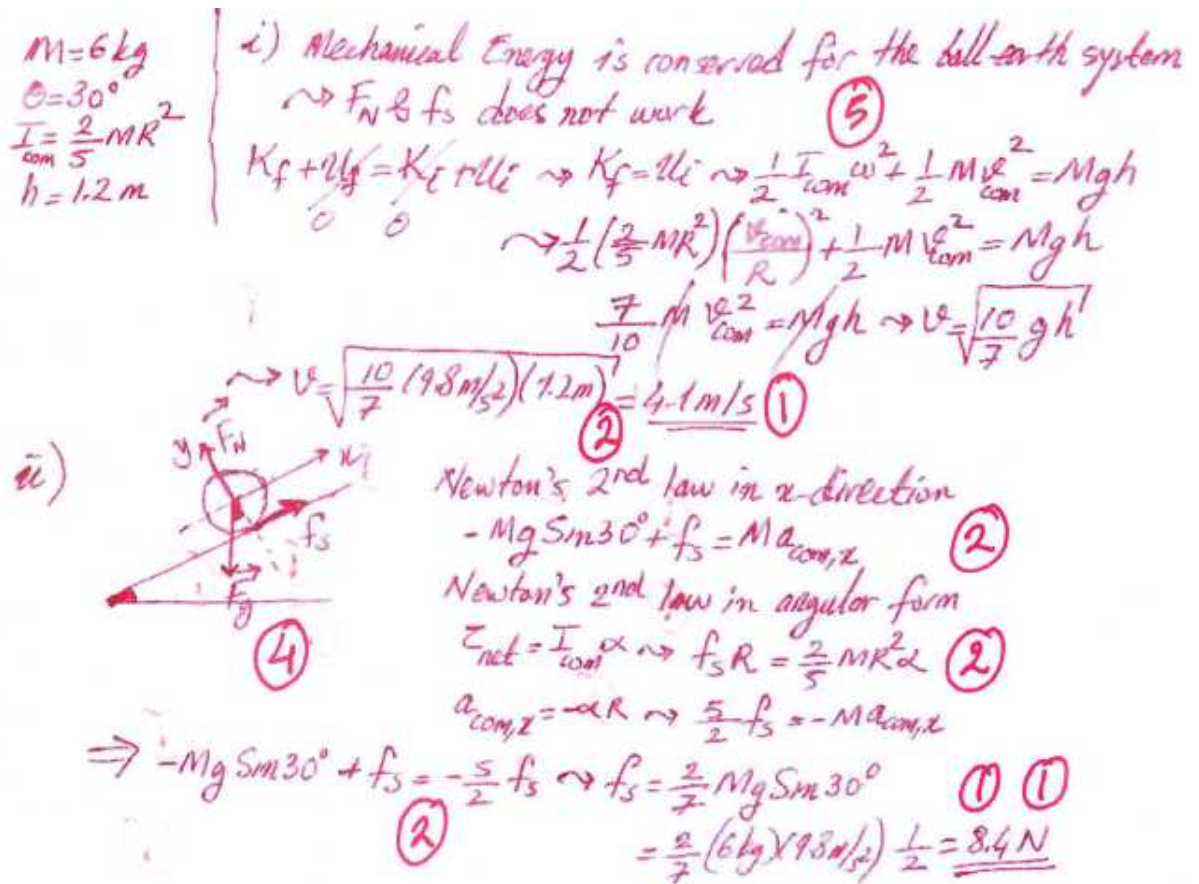 M=6kg
θ=30°
I_com=2/5 MR²
h=1.2m
i) Mechanical Energy is conserved for the ball-earth system
⇝ F_N & f_s does not work ⑤
K_f+U_f=K_i+U_i ⇝ K_f=U_i ⇝ 1/2 I_com ω²+1/2 M v²_com=Mgh
0 0
⇝ 1/2 (2/5 MR²)(v_com/R)²+1/2 M v²_com=Mgh
7/10 M v²_com=Mgh ⇝ v=√(10/7 gh)
⇝ v=√(10/7 (9.8m/s²)(1.2m)) ② = 4.1m/s ①
ii)
y F_N x
f_s
F_g
④
Newton's 2nd law in x-direction
-MgSin30°+f_s=Ma_com,x ②
Newton's 2nd law in angular form
τ_net=I_com α ⇝ f_s R=2/5 MR²α ②
a_com,x=-αR ⇝ 5/2 f_s=-Ma_com,x
⇒ -MgSin30°+f_s=-5/2 f_s ⇝ f_s=2/7 MgSin30° ① ①
②
=2/7 (6kg)(9.8m/s²) 1/2=8.4N